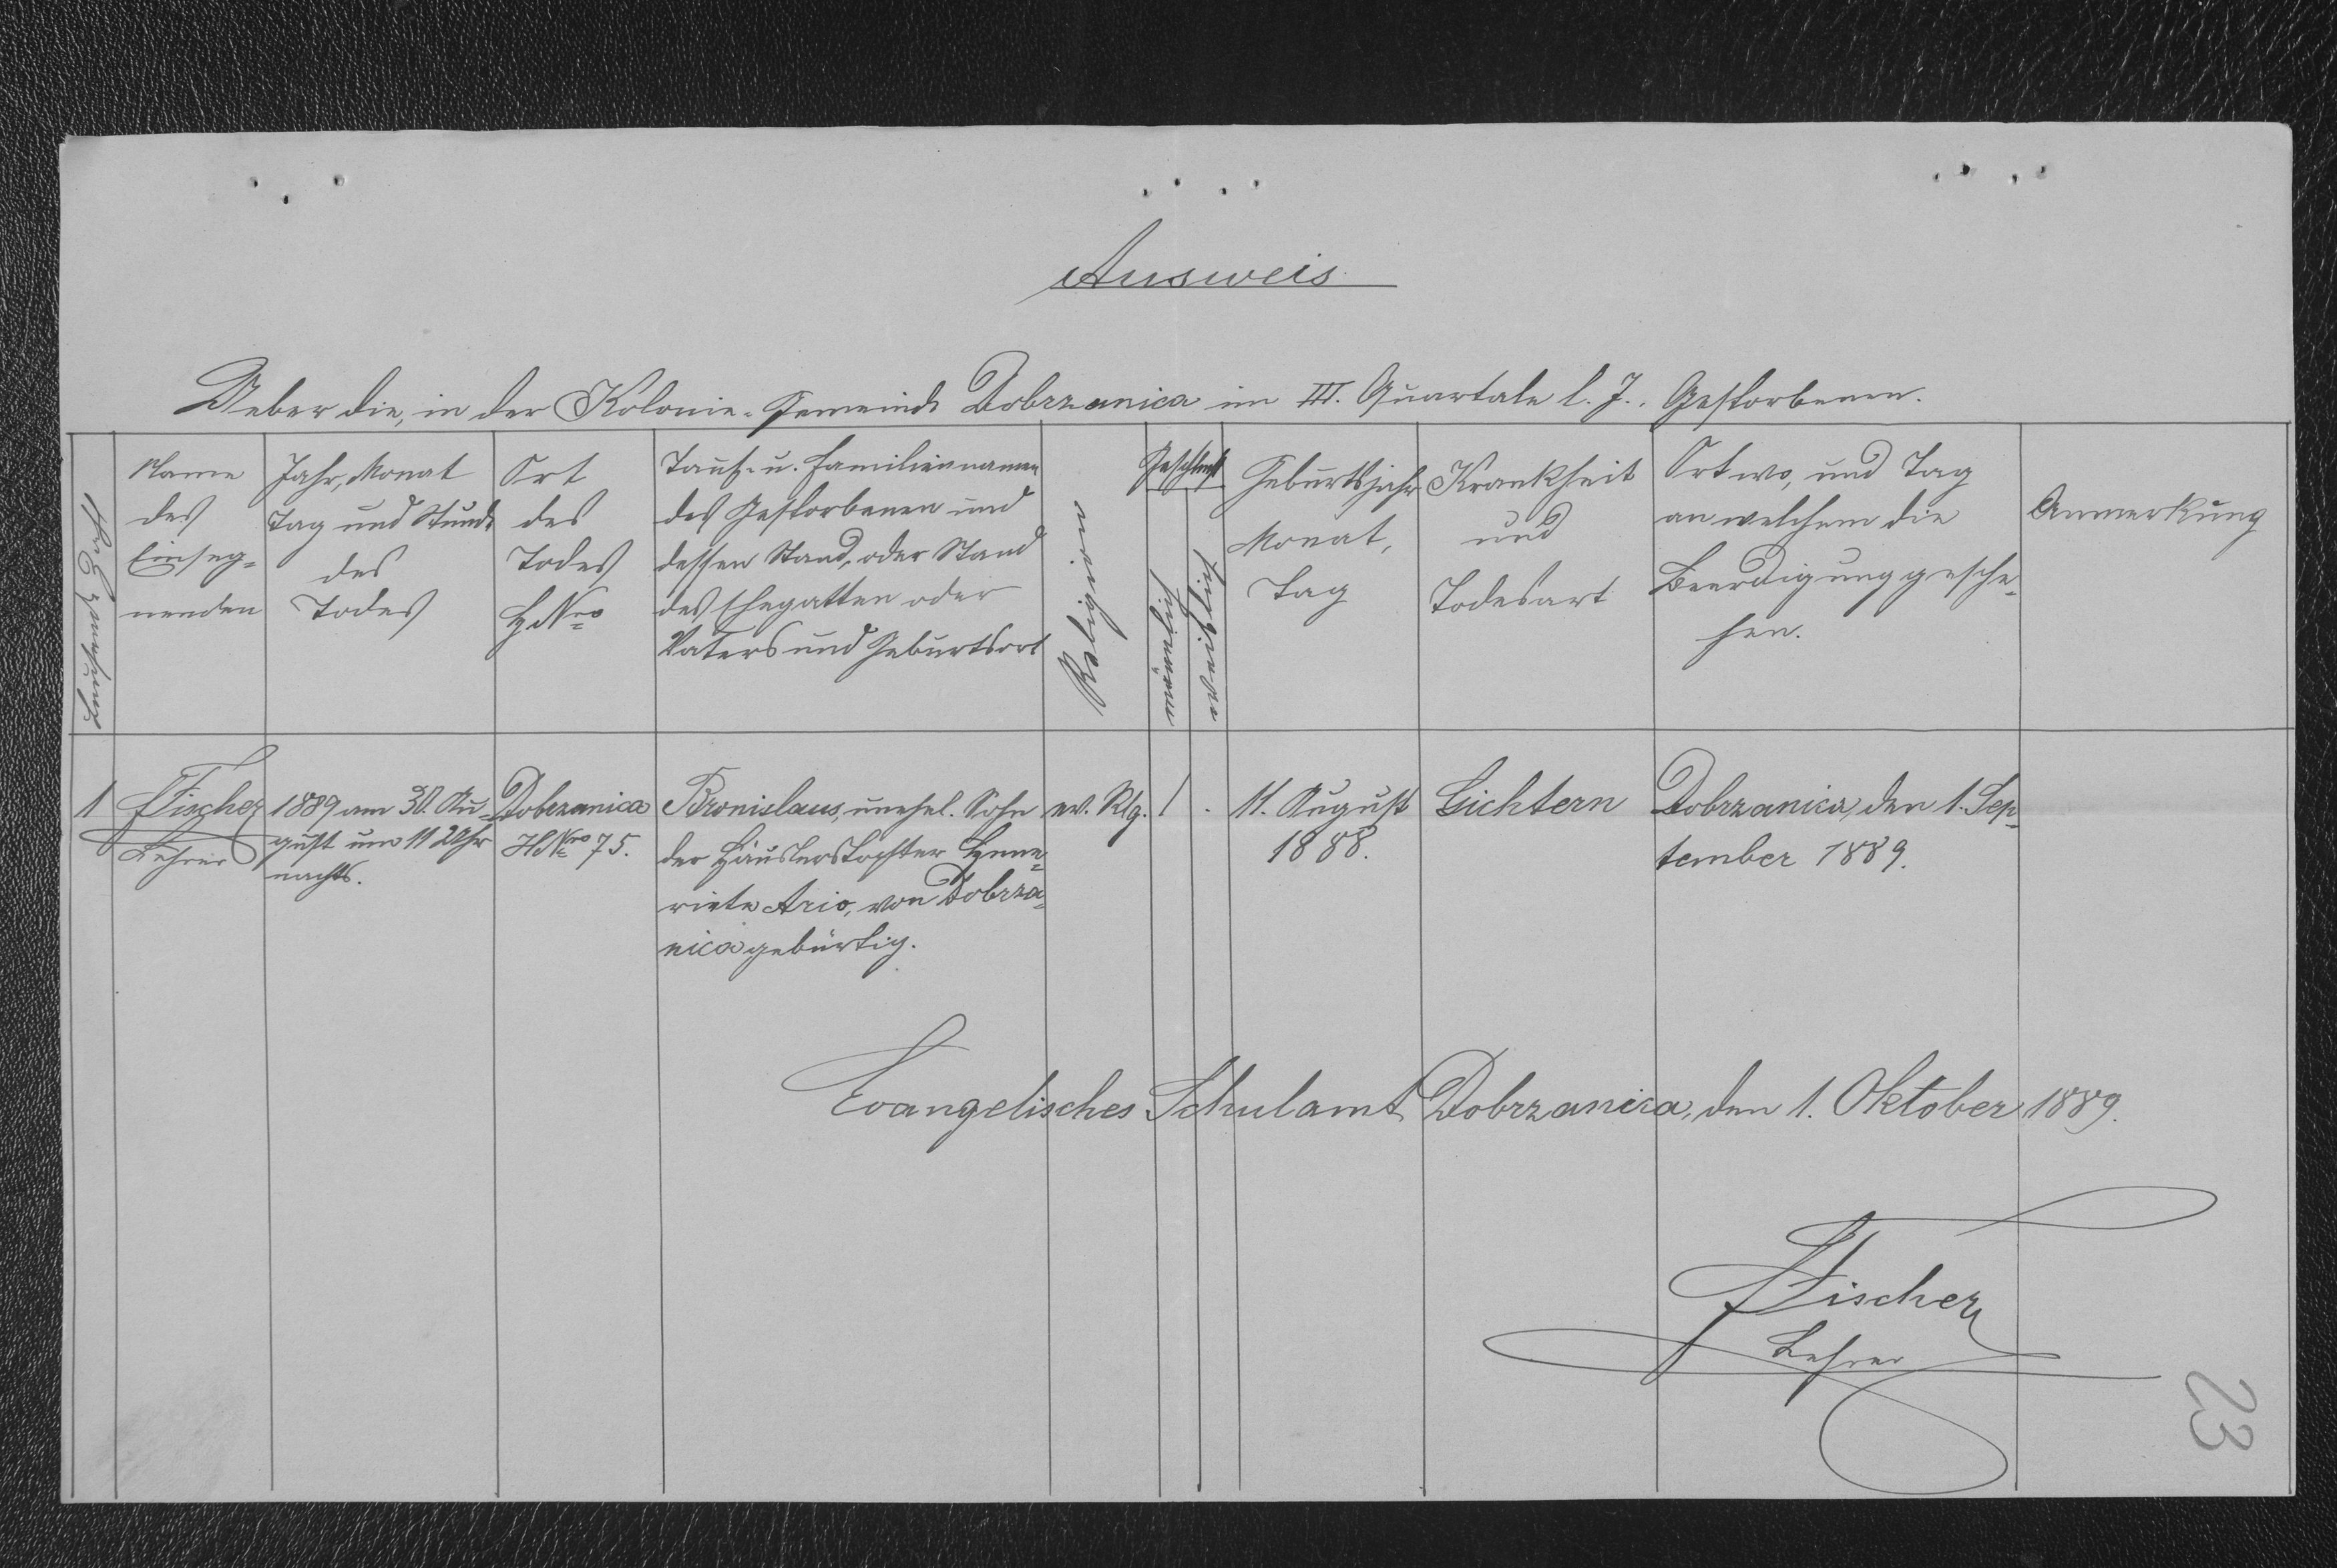 Ausweis
Ueber die, in der Kolonie-Gemeinde Dobrzanica im III. Quartale l. J. Gestorbenen.
Laufende Zahl
Name
des
Einseg-
nenden
Jahr, Monat
Tag und Stunde
des
Todes
Ort
des
Todes
HNro
Tauf- u. Familiennamen
des Gestorbenen und
dessen Stand, oder Stand
des Ehegatten oder
Vaters und Geburtsort
Religion
Geschlecht
männlich
weiblich
Geburtsjahr
Monat,
Tag
Krankheit
und
Todesart
Ort wo, und Tag
an welchem die
Beerdigung gesche-
hen.
Anmerkung
1
Fischer
Lehrer
1889 am 30. Au-
gust um 11 Uhr
nachts.
Dobrzanica
HNro 75.
Bronislaus, unehel. Sohn
der Häuslerstochter Hene-
riete Ario, von Dobrza-
nica gebürtig.
ev. Rlg.
1
.
11. August
1888.
Gichtern
Dobrzanica, den 1. Sep-
tember 1889.
Evangelisches Schulamt Dobrzanica, den 1. Oktober 1889.
Fischer
Lehrer
23